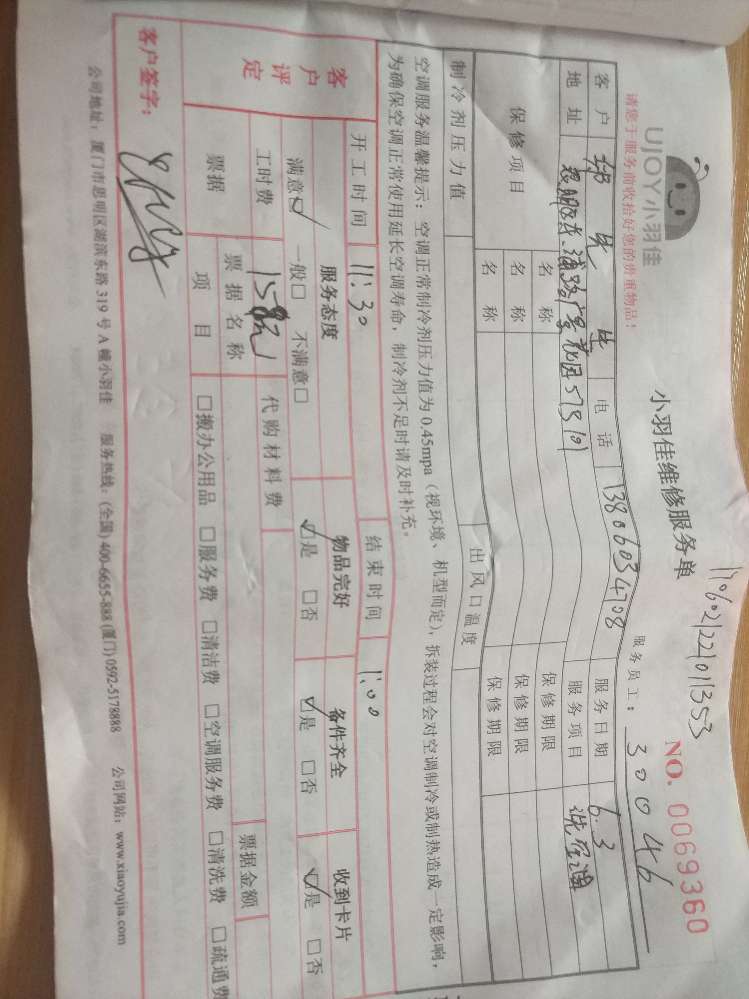 UJOY小羽佳
请您于服务前收拾好您的贵重物品!
小羽佳维修服务单
NO. 0069360
服务员工: 30046
客户 电话 13806034708 服务日期 6.3
地址 服务项目
保修项目 名称 保修期限
名称 保修期限
名称 保修期限
制冷剂压力值 出风口温度
空调服务温馨提示:空调正常制冷剂压力值为0.45mpa(视环境、机型而定),拆装过程会对空调制冷或制热造成一定影响,
为确保空调正常使用延长空调寿命,制冷剂不足时请及时补充。
开工时间 11:30 结束时间 11:00
客户评定 服务态度 物品完好 备件齐全 收到卡片
满意☑ 一般□ 不满意□ ☑是 □否 ☑是 □否 ☑是 □否
工时费 158元 代购材料费
票据 票据名称 票据金额
项目 □搬办公用品 □服务费 □清洁费 □空调服务费 □清洗费 □疏通费
客户签字:
公司地址:厦门市思明区湖滨东路319号A幢小羽佳 服务热线:(全国)400-6655-888(厦门)0592-5178888 公司网站:www.xiaoyujia.com